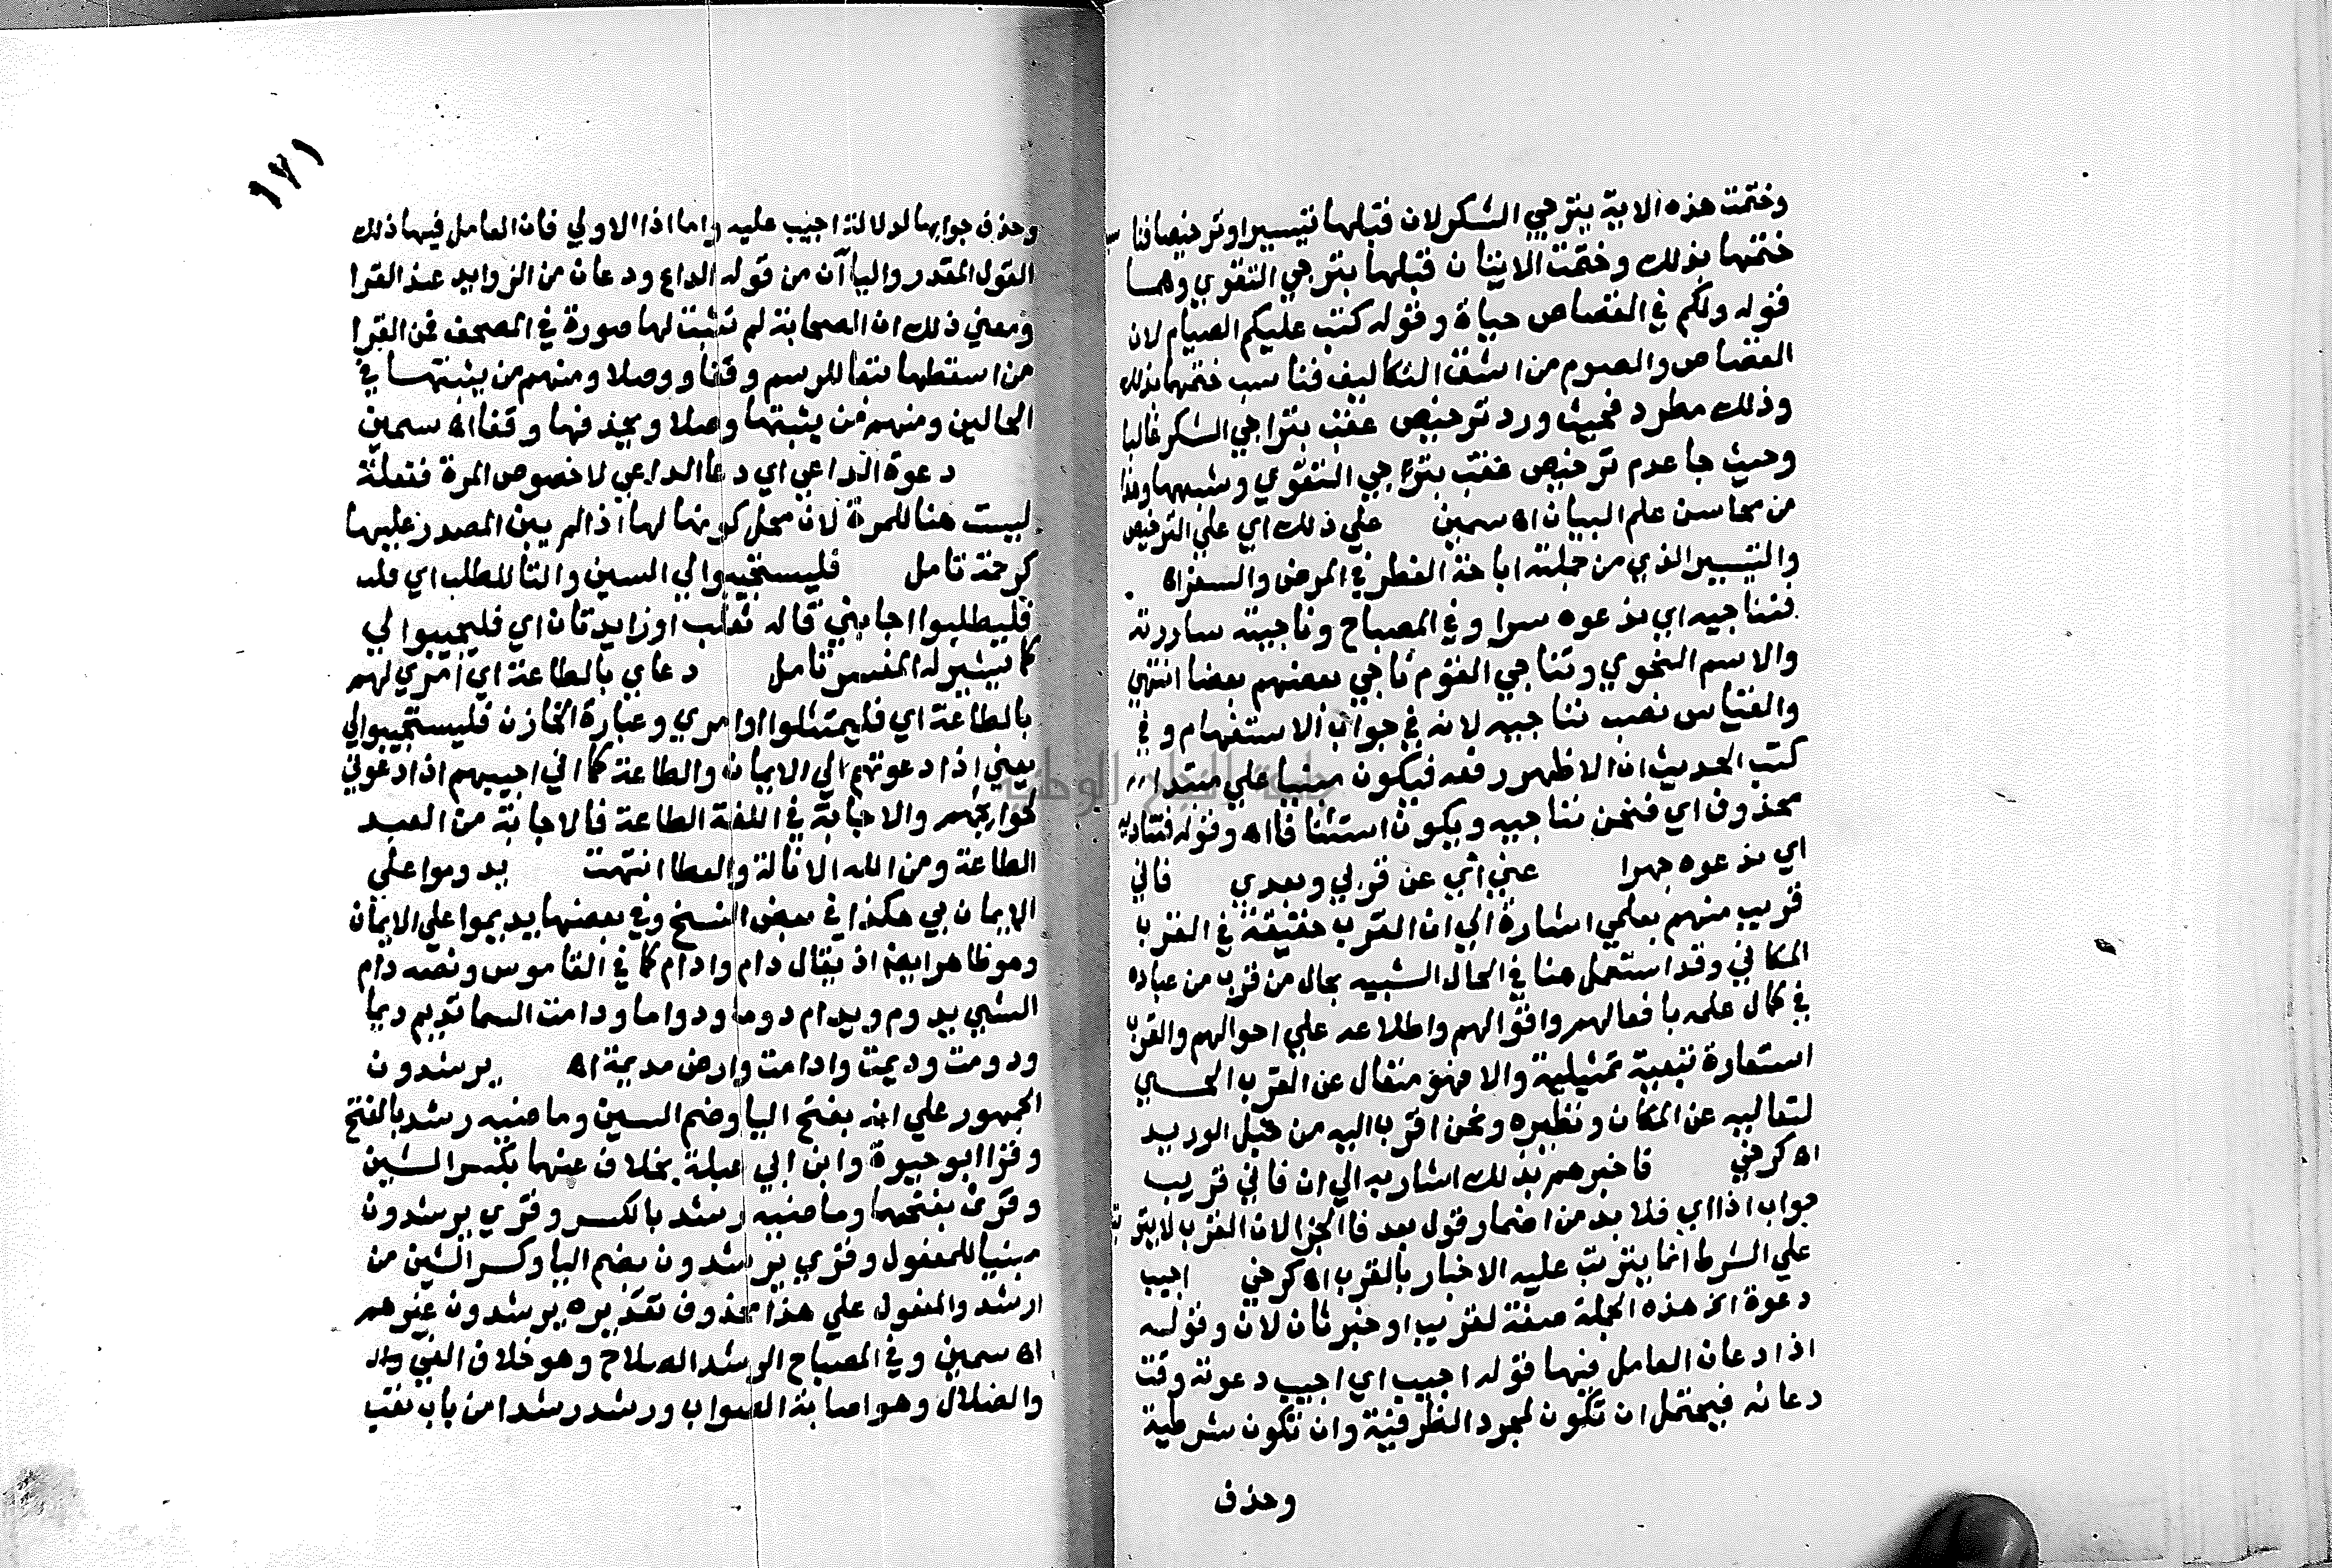 وختمت هذه الاية بترجي الشكر لان قبلها تيسيرا وترخيصا فنا
ختمها بذلك وختمت الايتان قبلها بترجي التقوي وهما
قوله ولكم في القصاص حياة وقوله كتب عليكم الصيام لان
القصاص والصوم من اشق التكاليف فناسب ختمها بذلك
وذلك مطرد فحيث ورد ترخيص عقب بتراجي الشكر غالبا
وحيث جا عدم ترخيص عقب بتراجي التقوي وشبهها وهذا
من محاسن علم البيان اه سمين علي ذلك اي علي الترخيص
والتيسير الذي من جملته اباحة الفطر في المرض والسفر اه
فنناجيه اي ندعوه سرا وفي المصباح وناجيته ساررته
والاسم النجوي وتناجي القوم ناجي بعضهم بعضا انتهي
والقياس نصب نناجيه لانه في جواب الاستفهام وفي
كتب الحديث ان الاظهر رفعه فيكون مبنيا علي مبتدا
محذوف اي فنحن نناجيه ويكون استئنافا اه وقوله فنناديه
اي ندعوه جهرا عني اي عن قربي وبعدي فاني
قريب منهم بعلمي اشارة الي ان القرب حقيقة في القرب
المكاني وقد استعمل هنا في الحال الشبيه بحال من قرب من عباده
في كمال علمه بافعالهم واقوالهم واطلاعه علي احوالهم والقرب
استعارة تبعية تمثيلية والا فهو متعال عن القرب الحسي
لتعاليه عن المكان ونظيره ونحن اقرب اليه من حبل الوريد
اه كرخي فاخبرهم بذلك اشار به الي ان فاني قريب
جواب اذا اي فلا بد من اضمار قول بعد فا الجزا لان القرب لا يترتب
علي الشرط انما يترتب عليه الاخبار بالقرب اه كرخي اجيب
دعوة الخ هذه الجملة صفة لقريب او خبر ثان لان وقوله
اذا دعان العامل فيها قوله اجيب اي اجيب دعوته وقت
دعائه فيحتمل ان تكون لمجرد الظرفية وان تكون شرطية
وحذف
١٧١
وحذف جوابها لدلالة اجيب عليه واما اذا الاولي فان العامل فيها ذلك
القول المقدر والياآن من قوله الداع ودعان من الزوايد عند القرا
ومعني ذلك ان الصحابة لم تثبت لها صورة في المصحف فمن القرا
من اسقطها تبعا للرسم وقفا ووصلا ومنهم من يثبتها في
الحالين ومنهم من يثبتها وصلا ويحذفها وقفا اه سمين
دعوة الداعي اي دعا الداعي لا خصوص المرة ففعلة
ليست هنا للمرة لان محل كونها لها اذا لم يبن المصدر عليها
كرحمة تامل فليستجيبوا لي السين والتا للطلب اي فلـ
فليطلبوا اجابتي قاله ثعلب او زايدتان اي فليجيبوا لي
كما يشير له المفسر تامل دعاي بالطاعة اي امري لهم
بالطاعة اي فليمتثلوا اوامري وعبارة الخازن فليستجيبوا لي
يعني اذا دعوتهم الي الايمان والطاعة كما اني اجيبهم اذا دعوني
لحوايجهم والاجابة في اللغة الطاعة فالاجابة من العبد
الطاعة ومن الله الانالة والعطا انتهت يدوموا علي
الايمان بي هكذا في بعض النسخ وفي بعضها يديموا علي الايمان
وهو ظاهر ايضا اذ يقال دام وادام كما في القاموس ونصه دام
الشي يدوم ويدام دوما ودواما ودامت السما تديم ديما
ودومت وديمت وادامت وارض مديمة اه يرشدون
الجمهور علي انه بفتح اليا وضم الشين وماضيه رشد بالفتح
وقرا ابو حيوة وابن ابي عبلة بخلاف عنهما بكسر الشين
وقرئ بفتحها وماضيه رشد بالكسر وقري يرشدون
مبنيا للمفعول وقري يرشدون بضم اليا وكسر الشين من
ارشد والمفعول علي هذا محذوف تقديره يرشدون غيرهم
اه سمين وفي المصباح الرشد الصلاح وهو خلاف الغي
والضلال وهو اصابة الصواب ورشد رشدا من باب تعب